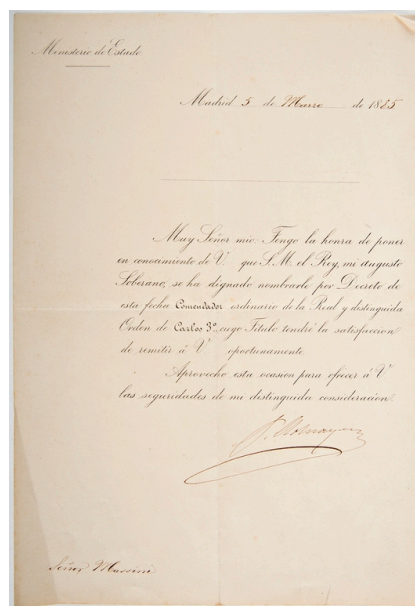 Ministerio de Estado
Madrid 5 de Marzo de 1885
Muy Señor mio: Tengo la honra de poner
en conocimiento de V. que S. M. el Rey, mi augusto
Soberano, se ha dignado nombrarle por Decreto de
esta fecha Comendador ordinario de la Real y distinguida
Orden de Carlos 3º, cuyo Título tendré la satisfaccion
de remitir á V. oportunamente.
Aprovecho esta ocasion para ofrecer á V.
las seguridades de mi distinguida consideracion.
Señor